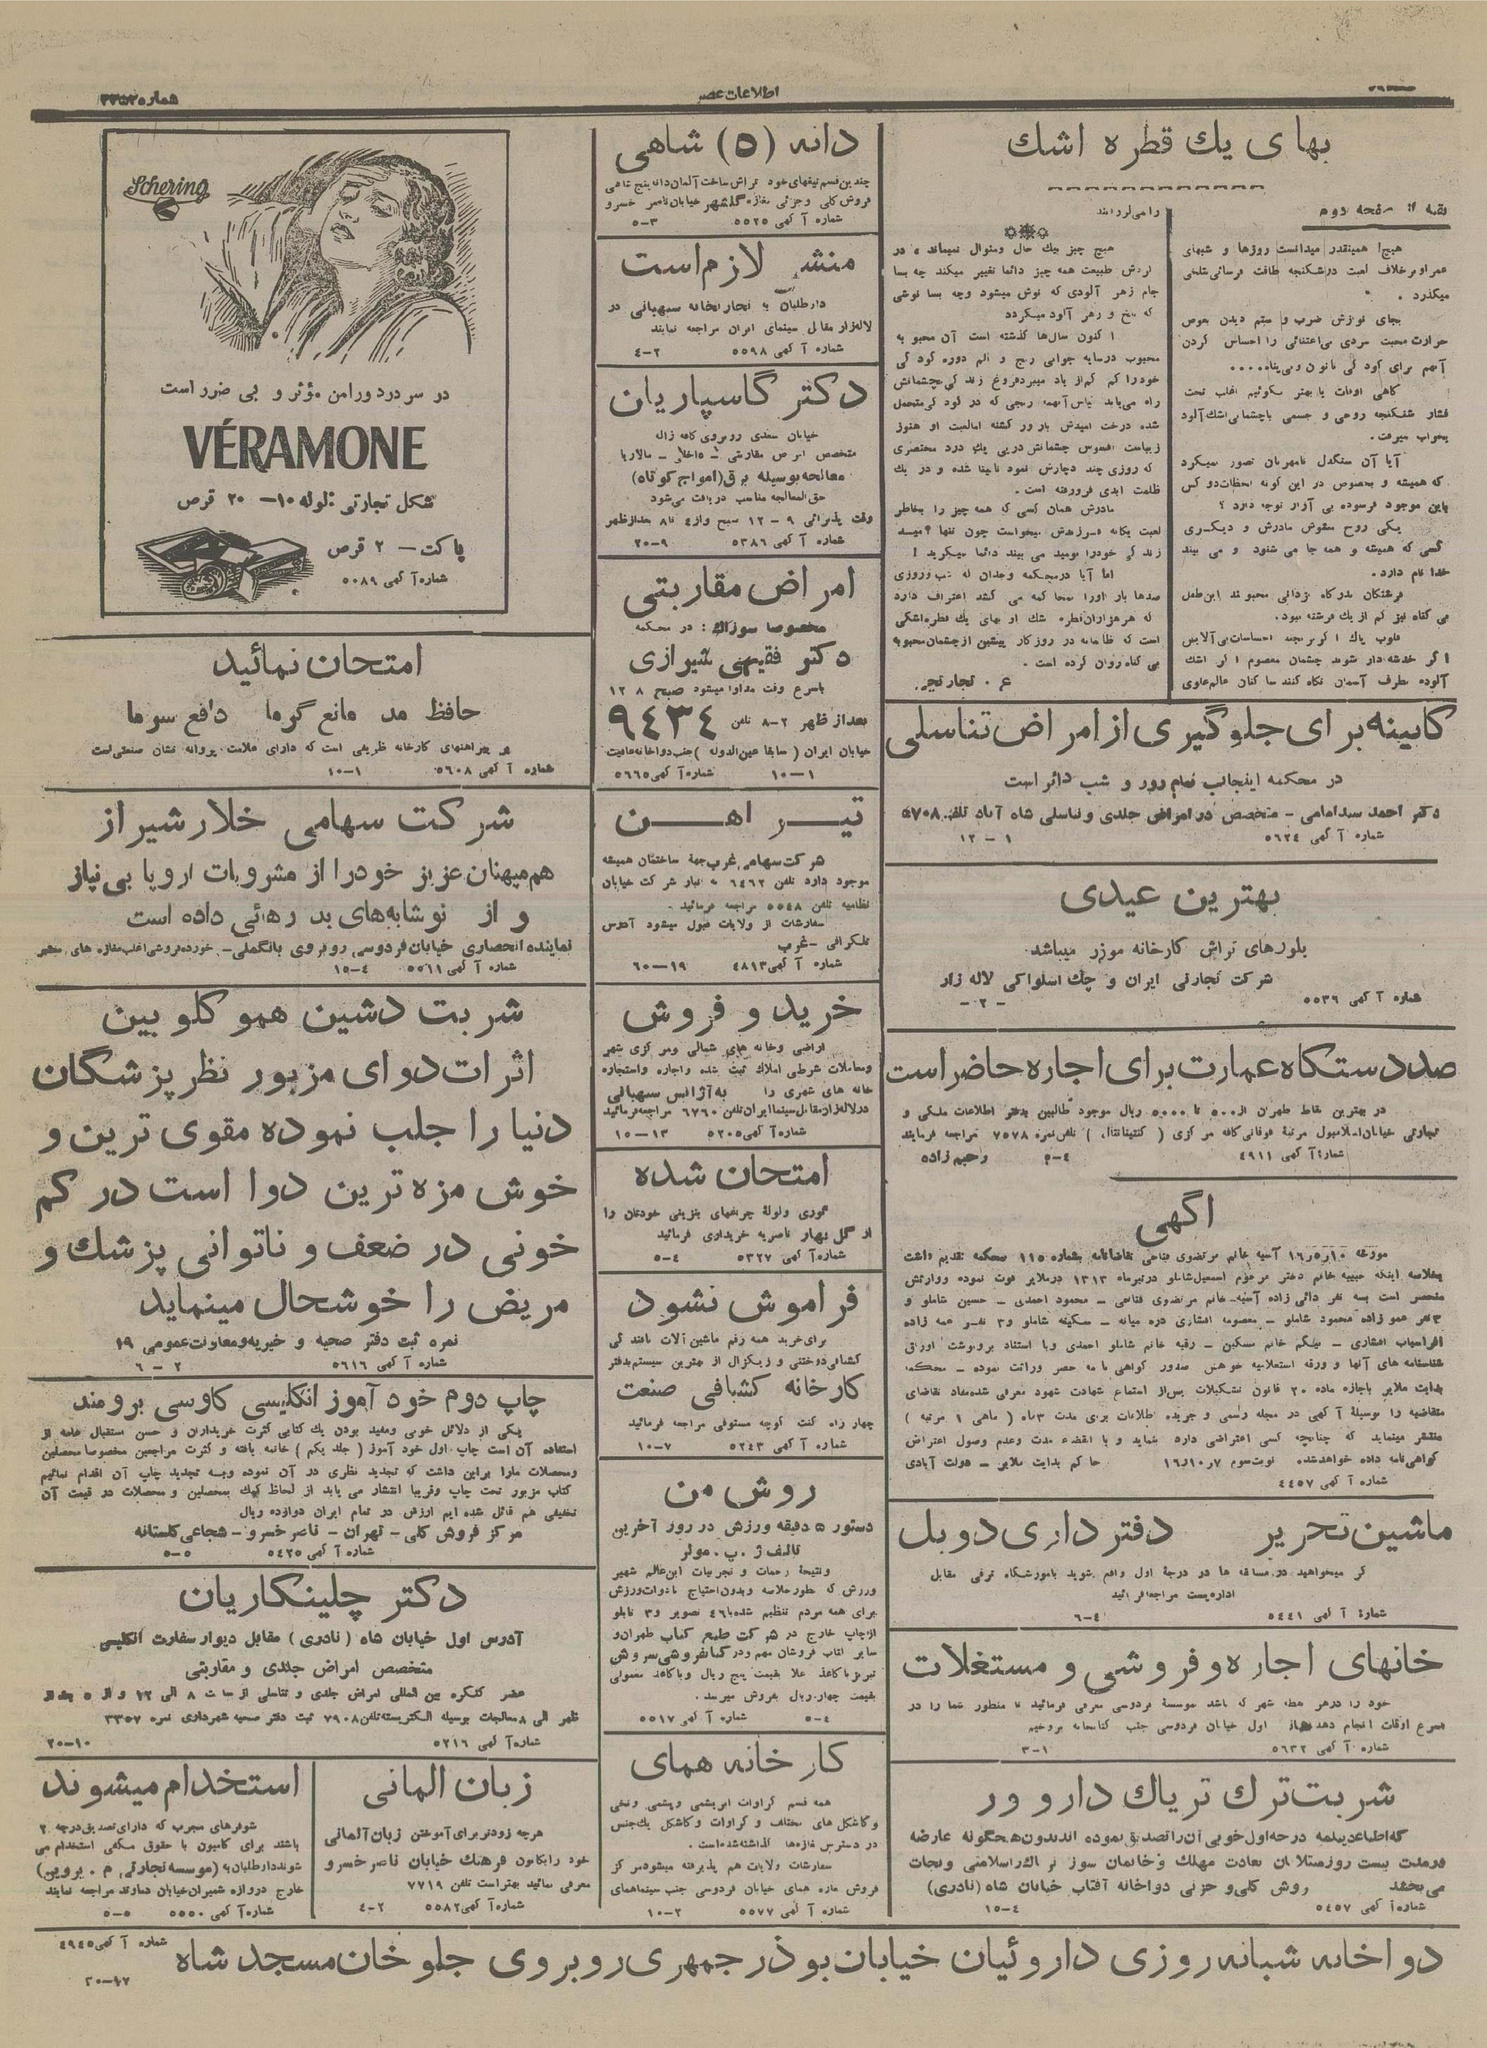 اطلاعات عصر
بهای یك قطره اشك
بقیه از صفحه دوم
هیچ! همینقدر میدانست روزها و شبهای
عمر او برخلاف لعبت در شکنجه طاقت فرسائی بتلخی
میگذرد .
بجای نوازش ضرب و ستم دیدن بعوض
حرارت محبت سردی بی‌اعتنائی را احساس کردن
گاهی اوقات یا بهتر بگوئیم اغلب تحت
فشار شکنجه روحی و جسمی باچشمانی اشك آلود
بخواب میرفت .
آیا آن سنگدل نامهربان تصور میکرد
که همیشه و بخصوص در این گونه لحظات دو کس
باین موجود فرسوده بی آزار توجه دارد ؟
یکی روح مادرش و دیگری
کسی که همیشه و همه جا می شنود و می بیند
خدا نام دارد .
بی گناه نیز کم از یك فرشته نبود .
اگر خدشه دار شوند چشمان معصوم اگر اشك
آلوده بطرف آسمان نگاه کنند ساکنان عالم علوی
را می لرزانند
هیچ چیز بیك حال و منوال نمیماند و در
گردش طبیعت همه چیز دائما تغییر میکند چه بسا
جام زهر آلودی که نوش میشود وچه بسا نوشی
که تلخ و زهر آلود میگردد
اکنون سال‌ها گذشته است آن محبوبه
شده درخت امیدش بارور گشته اما لعبت او هنوز
زیباست افسوس چشمانش در پی یك درد مختصری
که روزی چند دچارش نمود نابینا شده و در یك
ظلمت ابدی فرورفته است .
مادرش همان کسی که همه چیز را بخاطر
لعبت یگانه فرزندش میخواست چون تنها امید
زندگی خود را نومید می بیند دائما میگرید !
اما آیا در محکمه وجدان که شب و روزی
صدها بار او را محاکمه می کشد اعتراف دارد
که هر هزاران قطره اشك او بهای یك قطره اشکی
است که ظالمانه در روزگار پیشین از چشمان محبوبه
بی گناه روان کرده است .
ع . تجارتچی
کابینه برای جلوگیری از امراض تناسلی
در محکمه اینجانب تمام روز و شب دائر است
دکتر احمد سید امامی – متخصص در امراض جلدی و تناسلی شاه آباد تلفن ۵۷۰۸
شماره آگهی ۵۶۲۴ ۱ – ۱۲
بهترین عیدی
بلورهای تراش کارخانه موزر میباشد
شرکت تجارتی ایران و چك اسلواکی لاله زار
شماره آگهی ۵۵۳۹ – ۲ –
صد دستگاه عمارت برای اجاره حاضر است
در بهترین نقاط طهران از ۵۰۰ تا ۵۰۰۰ ریال موجود طالبین بدفتر اطلاعات ملکی و
تجارتی خیابان اسلامبول مرتبهٔ فوقانی کافه مرکزی ( کنتینانتال ) تلفن نمره ۷۵۷۸ مراجعه فرمایند
شماره آگهی ۴۹۱۱ رحیم زاده
آگهی
مورخه ۱۶٫۵٫۱۰ آسیه خانم مرتضوی فتاحی تقاضانامه بشماره ۱۱۵ بمحکمه تقدیم داشت
بخلاصه اینکه حبیبه خانم دختر مرحوم اسمعیل شاملو در تیرماه ۱۳۱۳ در ملایر فوت نموده ووراثش
منحصر است بسه نفر دائی زاده آسیه خانم مرتضوی فتاحی – محمود احمدی – حسین شاملو و
۳ نفر عمو زاده محمود شاملو – معصومه افشاری دره میانه – سکینه شاملو و۳ نفر عمه زاده
افراسیاب افشاری – بیگم خانم مسکین – رقیه خانم شاملو احمدی وبا استناد برونوشت اوراق
شناسنامه های آنها و ورقه استعلامیه خواهش صدور گواهی نامه حصر وراثت نموده – محکمه
بدایت ملایر باجازه ماده ۲۰ قانون تشکیلات پس از استماع شهادت شهود معرفی شده مفاد تقاضای
متقاضیه را بوسیلهٔ آگهی در مجله رسمی و جریده اطلاعات برای مدت ۳ ماه ( ماهی ۱ مرتبه )
منتشر مینماید که چنانچه کسی اعتراضی دارد بنماید و با انقضاء مدت وعدم وصول اعتراض
گواهی نامه داده خواهد شد . نوبت سوم ۱۶٫۱۰٫۷ حاکم بدایت ملایر – دولت آبادی
شماره آگهی ۴۴۵۷
ماشین تحریر دفتر داری دوبل
گر میخواهید در مسابقه ها در درجهٔ اول واقع شوید بآموزشگاه ترقی مقابل
اداره پست مراجعه فرمائید
شماره آگهی ۵۴۴۱ ۴–۶
خانهای اجاره و فروشی و مستغلات
خود را در هر نقطه شهر که باشد بموسسهٔ فردوسی معرفی فرمائید تا منظور شما را در
اسرع اوقات انجام دهد اول خیابان فردوسی جنب کتابخانه بروخیم
شماره آگهی ۵۶۳۲ ۱–۳
شربت ترك تریاك دارو ور
که اطباء دیپلمه درجه اول خوبی آن را تصدیق نموده اند بدون هیچگونه عارضه
در مدت بیست روز مبتلایان بعادت مهلك و خانمان سوز تریاك را سلامتی و نجات
می بخشد فروش کلی و جزئی دواخانه آفتاب خیابان شاه (نادری)
شماره آگهی ۵۴۵۷ ۴–۱۵
دانه (۵) شاهی
چندین قسم تیغهای خود تراش ساخت آلمان دانه پنج شاهی
فروش کلی و جزئی مغازه گلشهر خیابان ناصر خسرو
شماره آگهی ۵۵۲۵ ۳–۵
منشی لازم است
داوطلبان به تجارتخانه سبهانی در
لاله‌زار مقابل سینمای ایران مراجعه نمایند
شماره آگهی ۵۵۹۸ ۲–۴
دکتر گاسپاریان
خیابان سعدی روبروی کافه ژاله
متخصص امراض مقاربتی – داخلی – مالاریا
معالجه بوسیله برق (امواج کوتاه)
حق المعالجه مناسب دریافت می‌شود
وقت پذیرائی ۹ – ۱۲ صبح و از ۴ تا ۸ بعد از ظهر
شماره آگهی ۵۳۸۶ ۹–۲۰
امراض مقاربتی
مخصوصا سوزاك : در محکمه
دکتر فقیهی شیرازی
باسرع وقت مداوا میشود صبح ۸ ۱۲
بعد از ظهر ۲–۸ تلفن ۹۴۳۴
خیابان ایران ( سابقا عین‌الدوله ) جنب دواخانه عافیت
شماره آگهی ۵۶۶۵ ۱–۱۰
تیر اهن
شرکت سهامی غرب جهة ساختمان همیشه
موجود دارد تلفن ۶۴۶۲ انبار شرکت خیابان
نظامیه تلفن ۵۵۴۸ مراجعه فرمائید .
سفارشات از ولایات قبول میشود آدرس
تلگرافی – غرب
شماره آگهی ۴۸۱۳ ۱۹–۶۰
خرید و فروش
اراضی وخانه های شمالی ومرکزی شهر
ومعاملات شرطی املاك ثبت شده و اجاره واستجاره
خانه های شهری را به آژانس سبهانی
در لاله‌زار مقابل سینما ایران تلفن ۶۷۶۰ مراجعه فرمائید
شماره آگهی ۵۲۰۵ ۱۳–۱۵
امتحان شده
توری ولولهٔ چراغهای بنزینی خودتان را
از گل بهار ناصریه خریداری فرمائید
شماره آگهی ۵۳۲۷ ۴–۵
فراموش نشود
برای خرید همه رقم ماشین آلات بافندگی
کشبافی دوختنی و زیگزال از بهترین سیستم بدفتر
کارخانه کشبافی صنعت
چهار راه کنت کوچه مستوفی مراجعه فرمائید
شماره آگهی ۵۲۴۳ ۷–۱۰
روش من
دستور ۵ دقیقه ورزش در روز آخرین
تالیف ژ . پ . مولر
ونتیجهٔ زحمات و تجربیات این عالم شهیر
ورزش که بطور خلاصه وبدون احتیاج بادوات ورزش
برای همه مردم تنظیم شده با ۴۶ تصویر و ۳ تابلو
از چاپ خارج در شرکت طبع کتاب طهران و
سایر کتاب فروشان مهم و در کتابفروشی سروش
تبریز با کاغذ اعلا بقیمت پنج ریال و با کاغذ معمولی
بقیمت چهار ریال بفروش میرسد .
شماره آگهی ۵۵۱۷ ۴–۵
کارخانه همای
همه قسم کراوات ابریشمی و پشمی و نخی
وکاشکل های مختلف و کراوات و کاشکل یك جنس
در دسترس مغازه‌ها گذاشته شده است .
سفارشات ولایات هم پذیرفته میشود مرکز
فروش مغازه همای خیابان فردوسی جنب سینما همای
شماره آگهی ۵۵۷۷ ۲–۱۰
Schering
در سر درد ورامن مؤثر و بی ضرر است
VÉRAMONE
شکل تجارتی : لوله ۱۰ – ۲۰ قرص
پاکت – ۲ قرص
شماره آگهی ۵۰۸۹
امتحان نمائید
حافظ مد مانع گرما دافع سرما
پیراهنهای کارخانه ظریفی است که دارای علامت پروانه نشان صنعتی است
شماره آگهی ۵۶۰۸ ۱–۱۰
شرکت سهامی خلار شیراز
هم میهنان عزیز خود را از مشروبات اروپا بی نیاز
و از نوشابه‌های بد رهائی داده است
نماینده انحصاری خیابان فردوسی روبروی بانك ملی – خورده فروشی اغلب مغازه های معتبر
شماره آگهی ۵۵۶۱ ۴–۱۵
شربت دشین هموگلوبین
اثرات دوای مزبور نظر پزشگان
دنیا را جلب نموده مقوی ترین و
خوش مزه ترین دوا است در کم
خونی در ضعف و ناتوانی پزشك و
مریض را خوشحال مینماید
نمره ثبت دفتر صحیه و خیریه و معاونت عمومی ۱۹
شماره آگهی ۵۶۱۶ ۲–۶
چاپ دوم خود آموز انگلیسی کاوسی برومند
یکی از دلائل خوبی ومفید بودن یك کتابی کثرت خریداران و حسن استقبال عامه از
استفاده آن است چاپ اول خود آموز ( جلد یکم ) خاتمه یافته و کثرت مراجعین مخصوصا محصلین
ومحصلات مارا براین داشت که تجدید نظری در آن نموده وبه تجدید چاپ آن اقدام نمائیم
کتاب مزبور تحت چاپ وقریبا انتشار می یابد از لحاظ کمك بمحصلین و محصلات در قیمت آن
تخفیفی هم قائل شده ایم ارزش در تمام ایران دوازده ریال
مرکز فروش کلی – تهران – ناصر خسرو – شجاعی گلستانه
شماره آگهی ۵۴۲۵ ۵–۵
دکتر چلینگاریان
آدرس اول خیابان شاه (نادری) مقابل دیوار سفارت انگلیس
متخصص امراض جلدی و مقاربتی
عضو کنگره بین المللی امراض جلدی و تناسلی از ساعت ۸ الی ۱۲ و از ۵ بعد از
ظهر الی ۸ معالجات بوسیله الکتریسته تلفن ۷۹۰۸ ثبت دفتر صحیه شهرداری نمره ۳۳۵۷
شماره آگهی ۵۲۱۶ ۱۰–۲۰
زبان المانی
هرچه زودتر برای آموختن زبان آلمانی
خود رابکانون فرهنك خیابان ناصر خسرو
معرفی نمائید بهتر است تلفن ۷۷۱۹
شماره آگهی ۵۵۸۲ ۲–۴
استخدام میشوند
شوفرهای مجرب که دارای تصدیق درجه ۲
باشند برای کامیون با حقوق مکفی استخدام می
شوند داوطلبان به (موسسه تجارتی م . پرویی)
خارج دروازه شمیران خیابان دماوند مراجعه نمایند
شماره آگهی ۵۵۵۰ ۵–۵
دواخانه شبانه روزی داروئیان خیابان بوذرجمهری روبروی جلوخان مسجد شاه
شماره آگهی ۴۹۴۵
۱۷–۲۰